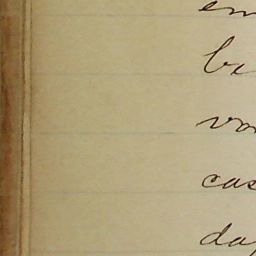 em
be
vo
cas
day